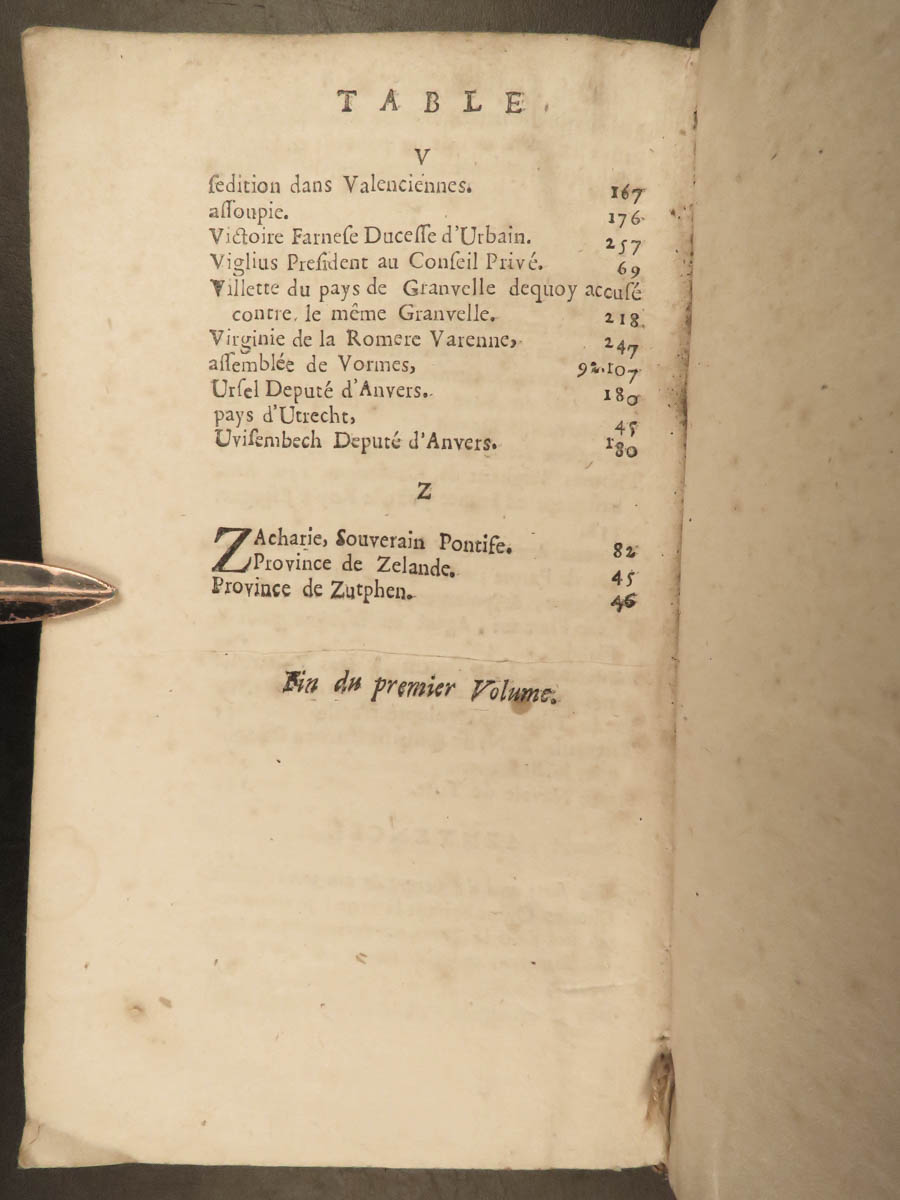 TABLE
V
ſedition dans Valenciennes. 167
aſſoupie. 176
Victoire Farneſe Duceſſe d'Urbain. 257
Viglius Preſident au Conſeil Privé. 69
Villette du pays de Granvelle dequoy accuſé
contre, le même Granvelle. 218
Virginie de la Romere Varenne, 247
aſſemblée de Vormes, 92.107
Urſel Deputé d'Anvers. 180
pays d'Utrecht, 45
Uviſembech Deputé d'Anvers. 180
Z
ZAcharie, Souverain Pontife. 82
Province de Zelande. 45
Province de Zutphen. 46
Fin du premier Volume.